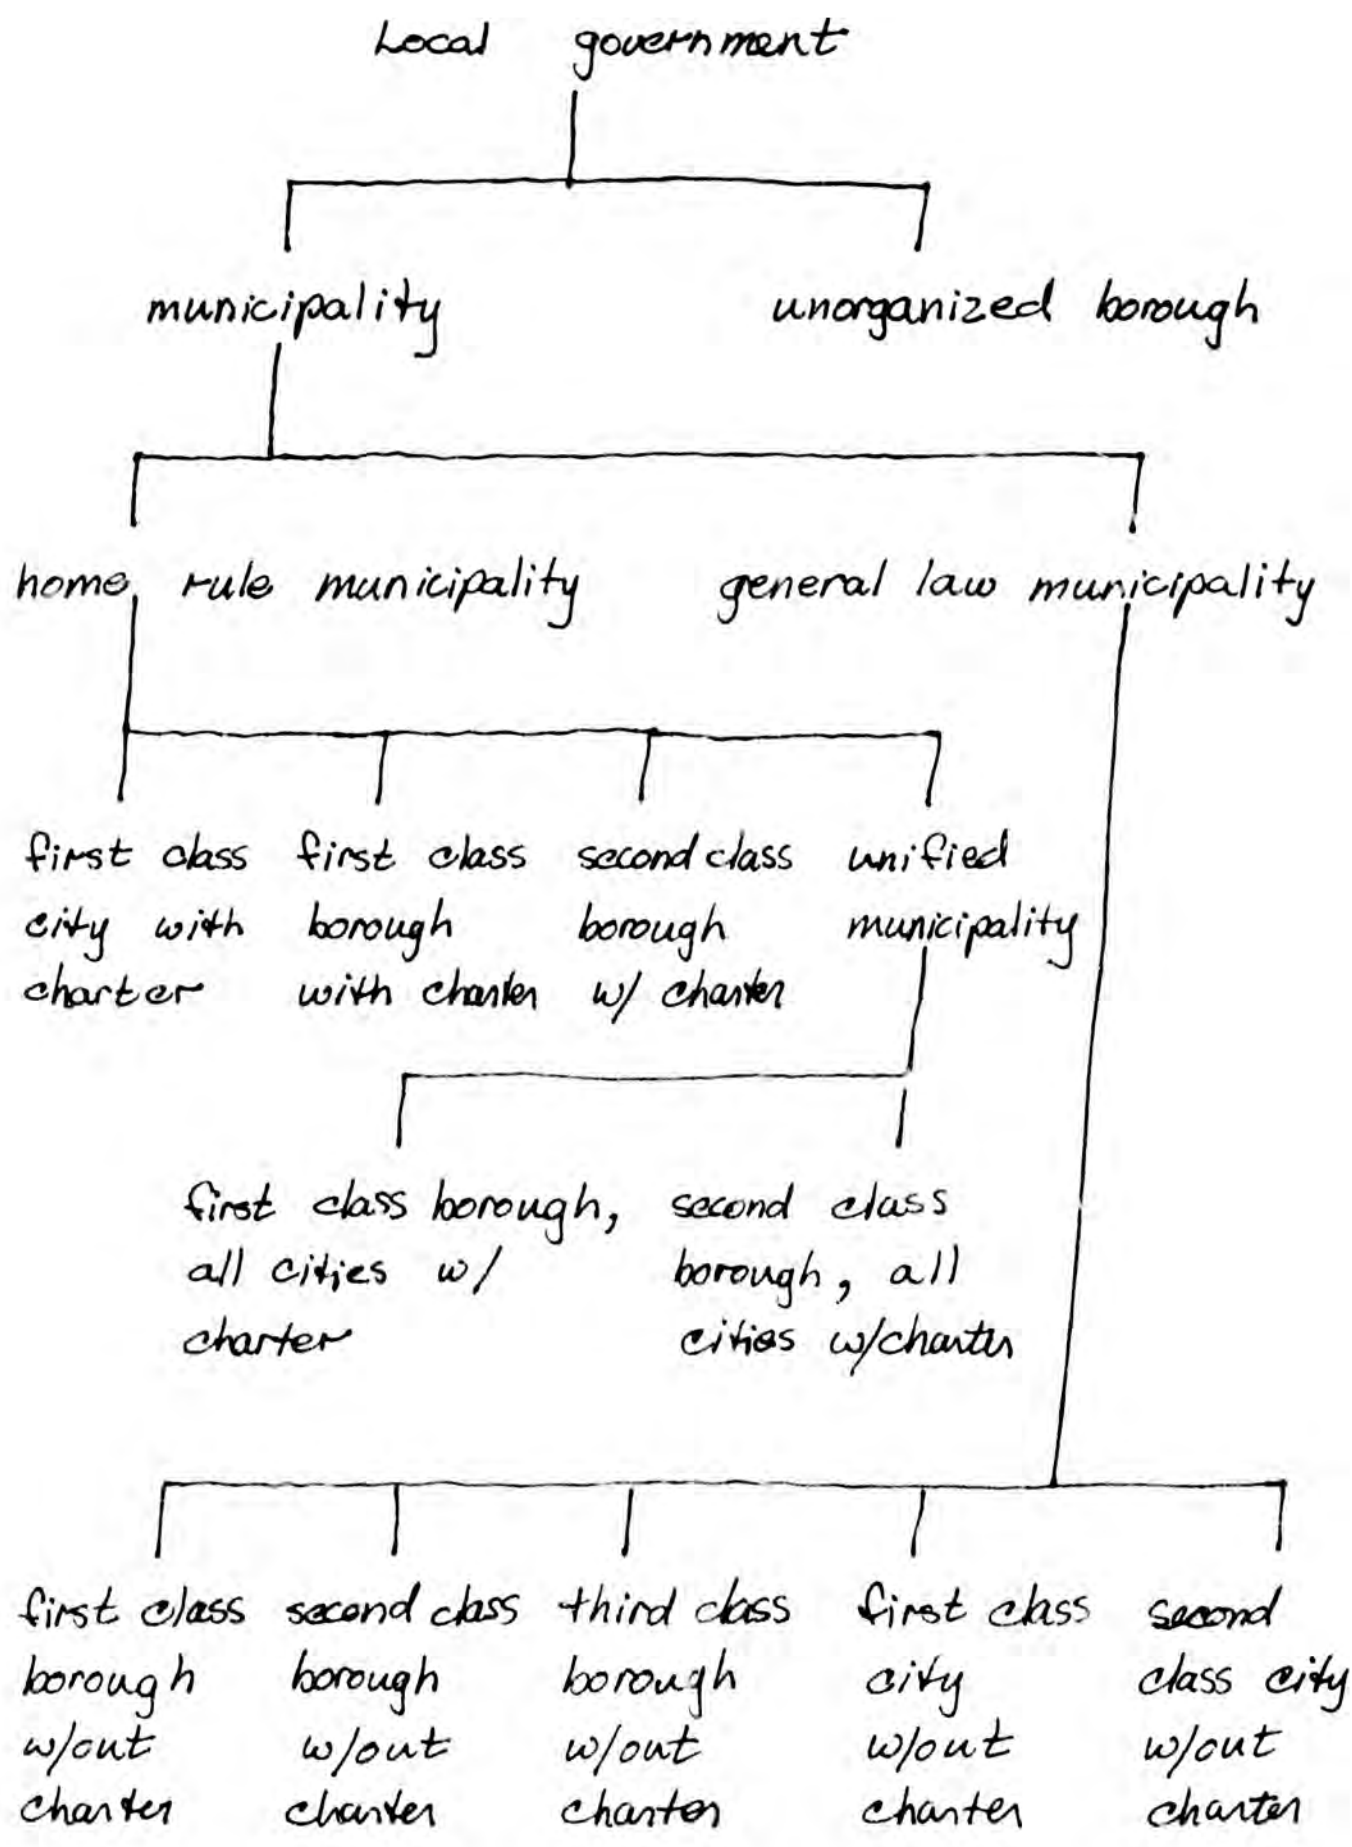 Local government
municipality
unorganized borough
home rule municipality
general law municipality
first class
city with
charter
first class
borough
with charter
second class
borough
w/ charter
unified
municipality
first class borough,
all cities w/
charter
second class
borough, all
cities w/charter
first class
borough
w/out
charter
second class
borough
w/out
charter
third class
borough
w/out
charter
first class
city
w/out
charter
second
class city
w/out
charter